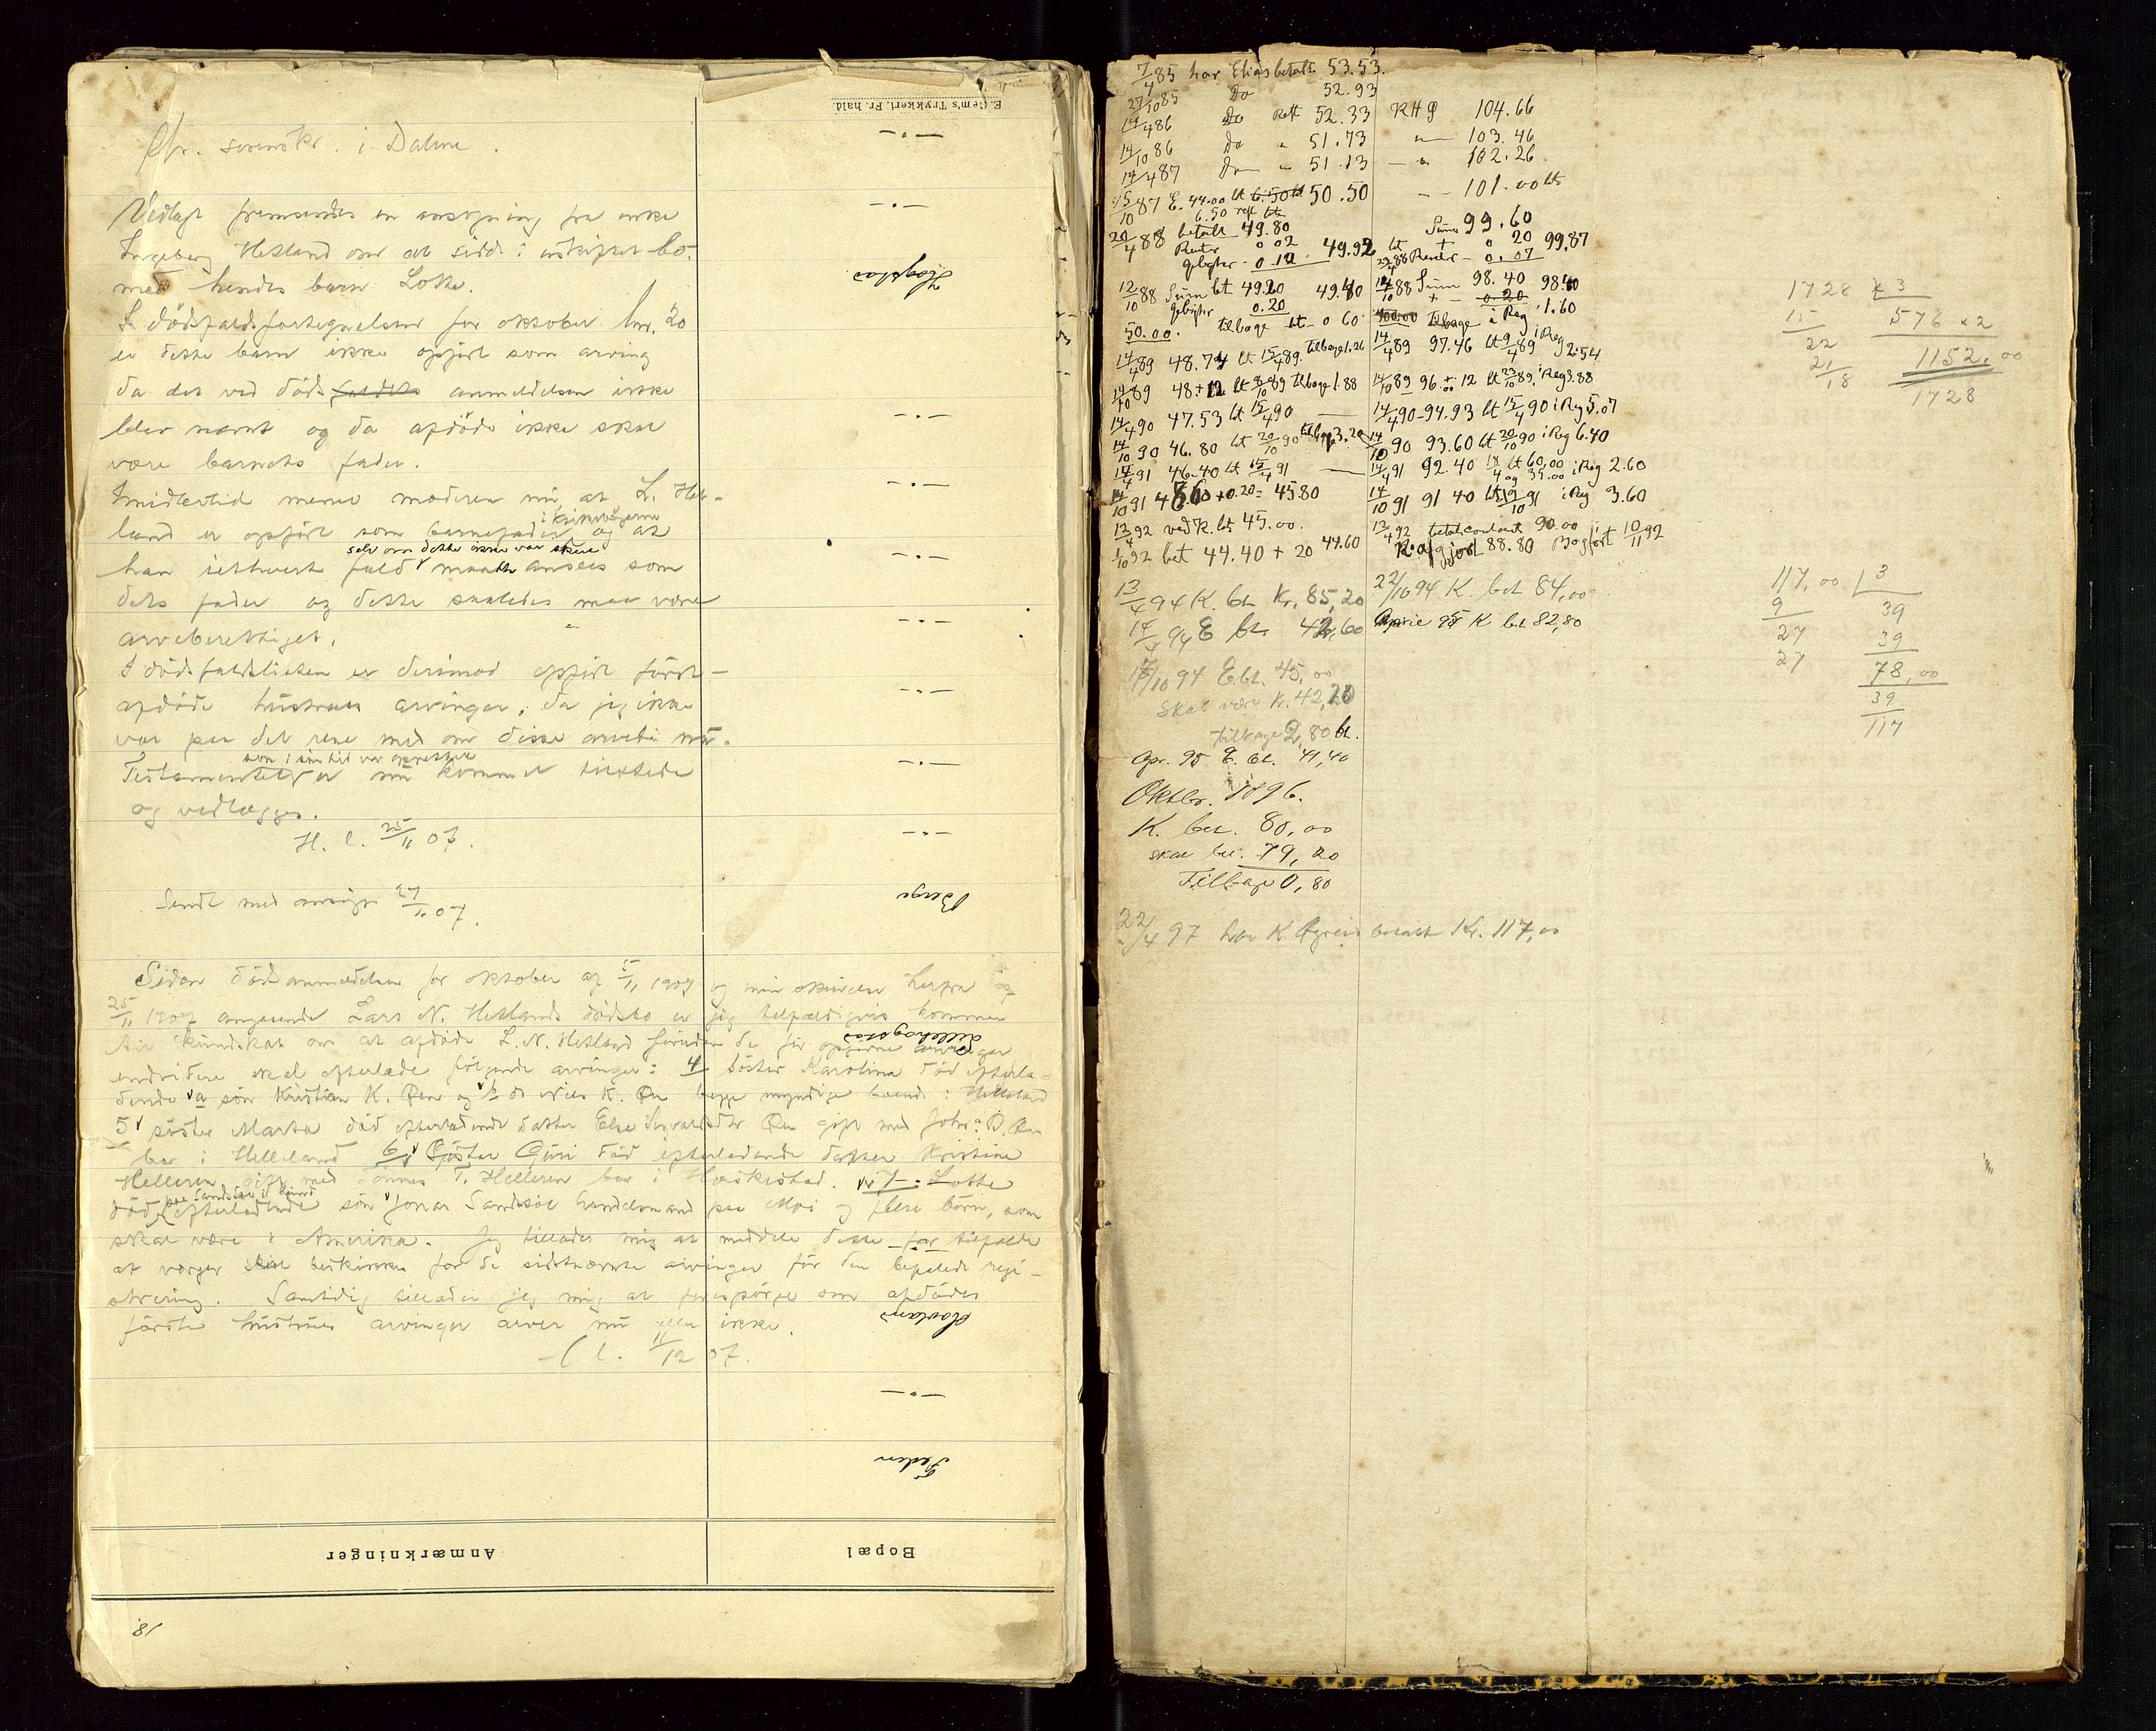 Hr. sorenskr. i Dalene.
Vedlagt fremsendes en ansøgning fra enke
Ingeborg Hetland om at sidde i uskiftet bo
med hendes barn Lotte.
I dödsfaldsfortegnelsen for oktober lnr. 20
er dette barn ikke opfört som arving
da det ved döds faldets anmeldelsen ikke
blev nævnt og da afdöde ikke skal
være barnets fader.
Imidlertid mener moderen nu, at L. Het-
land er opfört som barnefader i kirkebögerne og at
han iethvert fald selv om dette ikke var skeet maatte ansees som
dets fader og dette saaledes maa være
arveberettiget.
I dödsfaldslisten er derimod opfört först-
afdöde hustrues arvinger, da jeg ikke
var paa det rene med om disse arvede nu.
Testamentet som i sin tid var oprettet er nu kommet tilstede
og vedlægges.
H. l. 25/11 07.
Sendt med ansögn 27/11 07.
Siden dödsanmeldelsen for oktober af 5/11 1907 og min skrivelse herfra af
25/11 1907 angaaende Lars N. Hetlands dödsbo er jeg tilfældigvis kommen
til kundskab om at afdöde L. N. Hetland foruden de för opgivne arvinger
endvidere skal efterlade fölgende arvinger: 4 söster Karolina död efterla-
dende a sön Kristian K. Øen og b do Nils K. Øen begge myndige boende i Helleland
5 söster Marta död efterladende datter Else Sivertsdtr Øen gift med Johs. D. Øen
bor i Helleland 6 Söster Guri död efterladende datter Kristine
Helleren gift med Tönnes T. Helleren bor i Haskistad. nr 7 : Lotte
död paa Sandsöe i Lund efterladende sön Jonas Sandsöe handelsmand paa Moi og flere börn, som
skal være i Amerika. Jeg tillader mig at meddele dette for tilfælde
at værger skal beskikkes for de sidstnævnte arvinger för den befalede regi-
strering. Samtidig tillader jeg mig at forespörge om afdödes
förste hustrues arvinger arver nu eller ikke.
H l. 11/12 07.
E. Gem's Trykkeri. Fr.hald.
— " —
— " —
Høgstad
— " —
— " —
— " —
— " —
— " —
— " —
— " —
Berge
Lillehögstad
Hovland
— " —
Feden
Anmærkninger
Bopæl
18.
7/4 85 har Elias betalt 53.53.
27/10 85 Do 52.93
14/4 86 Do Rest 52.33 KHg 104.66
14/10 86 Do " 51.73 " 103.46
14/4 87 Do " 51.13 — " 102.26
15/10 87 E. 44.00 bt 6.50 bt 50.50 — 101.00 bt
6.50 rest bt.
20/4 88 betalt 49.80 Sum 99.60
Renter 0 02 49.92 bt + 0 20 99.87
Gebyhr - 0.10 29/4 88 Renter - 0.07
12/10 88 Sum bt 49.20 49.40 14/10 88 Sum 98.40 98.40
Gebyhr 0.20 + - 0.20 1.60
50.00. tilbage bt - 0 60 100.00 tilbage i Reg
14/4 89 48.74 bt 15/4 89. tilbage 1.26 14/4 89 97.46 bt 9/4 89 i Reg 2.54
14/10 89 48 + 12 bt 8/10 89 tilbage 1.88 14/10 89 96.00 + 12 bt 23/10 89. i Reg 3.88
14/4 90 47.53 bt 15/4 90 — 14/4 90 - 94.93 bt 15/4 90 i Reg 5.07
14/10 90 46.80 bt 20/10 90 tilbage 3.20 14/10 90 93.60 bt 20/10 90 i Reg 6.40
14/4 91 46.40 bt 15/4 91 — 14/4 91 92.40 18/4 bt 60,00 og 35.00 i Reg 2.60
14/10 91 45.60 + 0.20 = 45.80 14/10 91 91 40 bt 19/10 91 i Reg 3.60
13/4 92 ved K. bt 45.00. 13/4 92 betalt contant 90.00
1/10 92 bet 44.40 + 20 44.60 K. afgjort 88.80 Bogfört 10/11 92
13/4 94 K. bt. Kr. 85,20 22/10 94 K. bet 84,00
14/4 94 E bt. 42,60 Aprie 95 K bet 82,80
17/10 94 E. bt. 45,00
Skal være k. 42,20
tilbage 2,80 bt.
Apr. 95 E. bt. 41,40
Oktbr. 1896.
K. bet. 80,00
skal bet. 79,20
Tilbage 0,80
22/4 97 har K. Øgreid betalt Kr. 117,00
1728 × 3
15 576 × 2
22 1152.00
21
18 1728
117,00 | 3
9 39
27 39
27 78,00
39
117